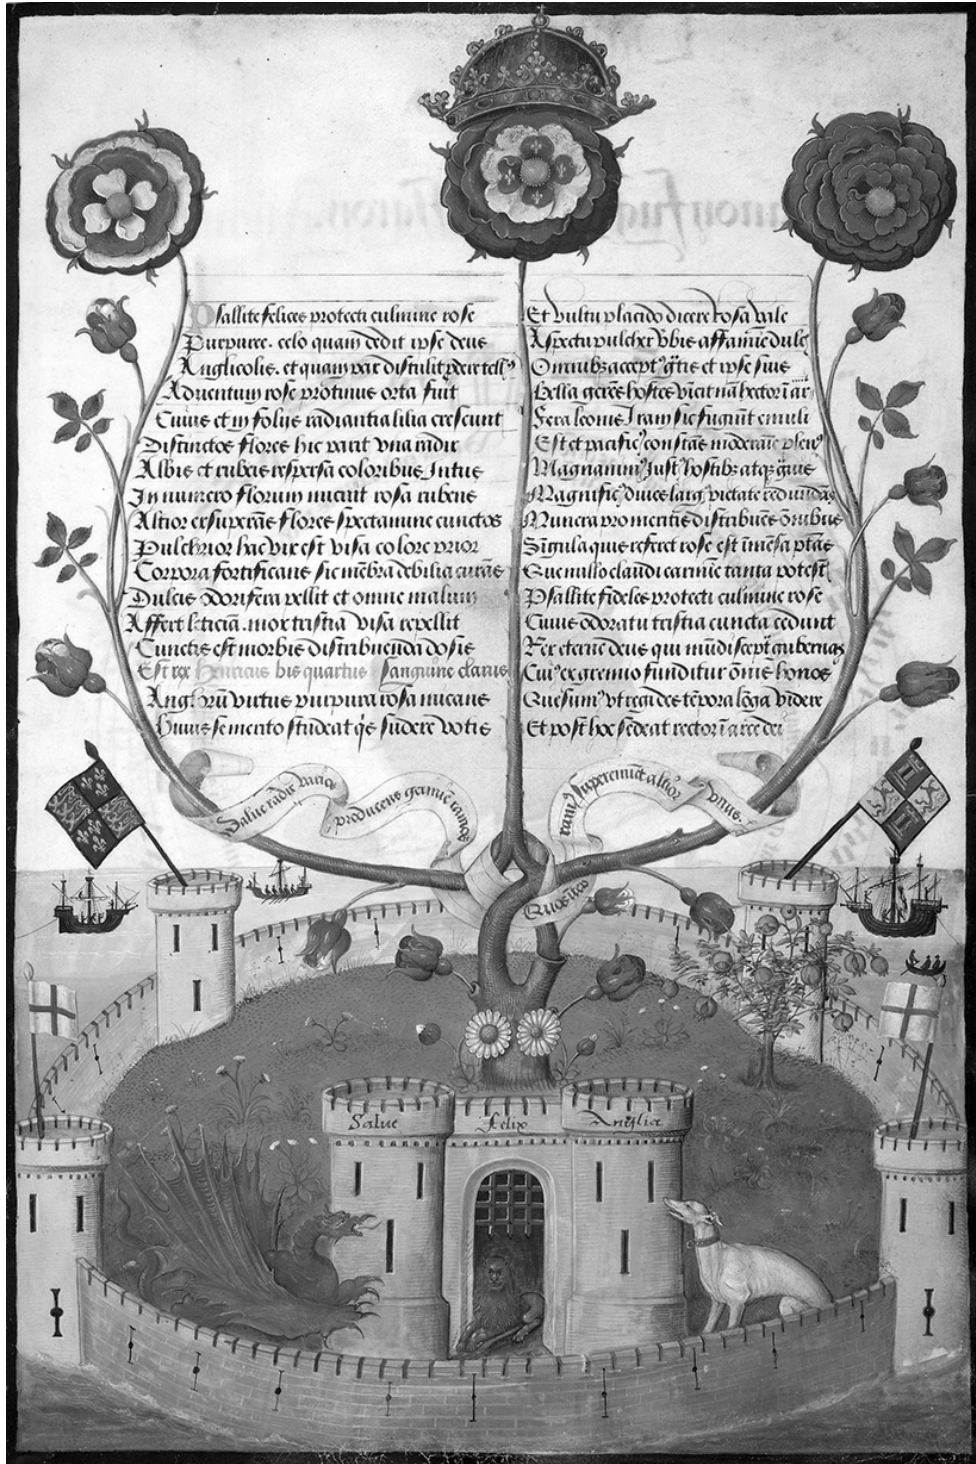 Psallite felices protecti culmine rose
Purpuree. celo quam dedit ipse deus
Anglicolis. et quam par distulit
Adventum rose protinus orta fuit
Cuius et in folijs radiantia lilia crescunt
Distinctos flores hic parit una radix
Albis et rubeis respersa coloribus. Intus
In numero florum micuit rosa rubens
Altior exsuperans flores spectamine cunctos
Pulchrior hac vix est visa colore prior
Corpora fortificans sic membra debilia curans
Dulcis odorifera pellit et omne malum
Affert leticiam. mox tristia visa repellit
Cunctis est morbis distribuenda dosis
Est rex Henricus bis quartus sanguine clarus
Angl. virtus purpura rosa micans
Huius memento studeat qis sudere votis
Et vultu placido dicere rosa vale
Aspectu pulcher
Omnibz accept gtis et ipse suis
Bella gerens hostes
Fera leonis Iram sic fugiunt emuli
Est et pacific constans
Magnanim Just hostibz atqz
Magnific dives larg pietate redundas
Munera pro meritis distribuens omibus
Singula quis referet rose est
Que nullo claudi carmine tanta potest
Psallite fideles protecti culmine rose
Cuius odoratu tristia cuncta cedunt
Rex eterne deus qui mundi sceptra gubernas
Cui ex gremio funditur omis honos
Quesum vt regi des tempora longa videre
Et post hec sedeat rector in arce dei
Salve radix varios
producens germine ramos
Quos inter
ramus supereminet altior
unus
Salve felix Anglia